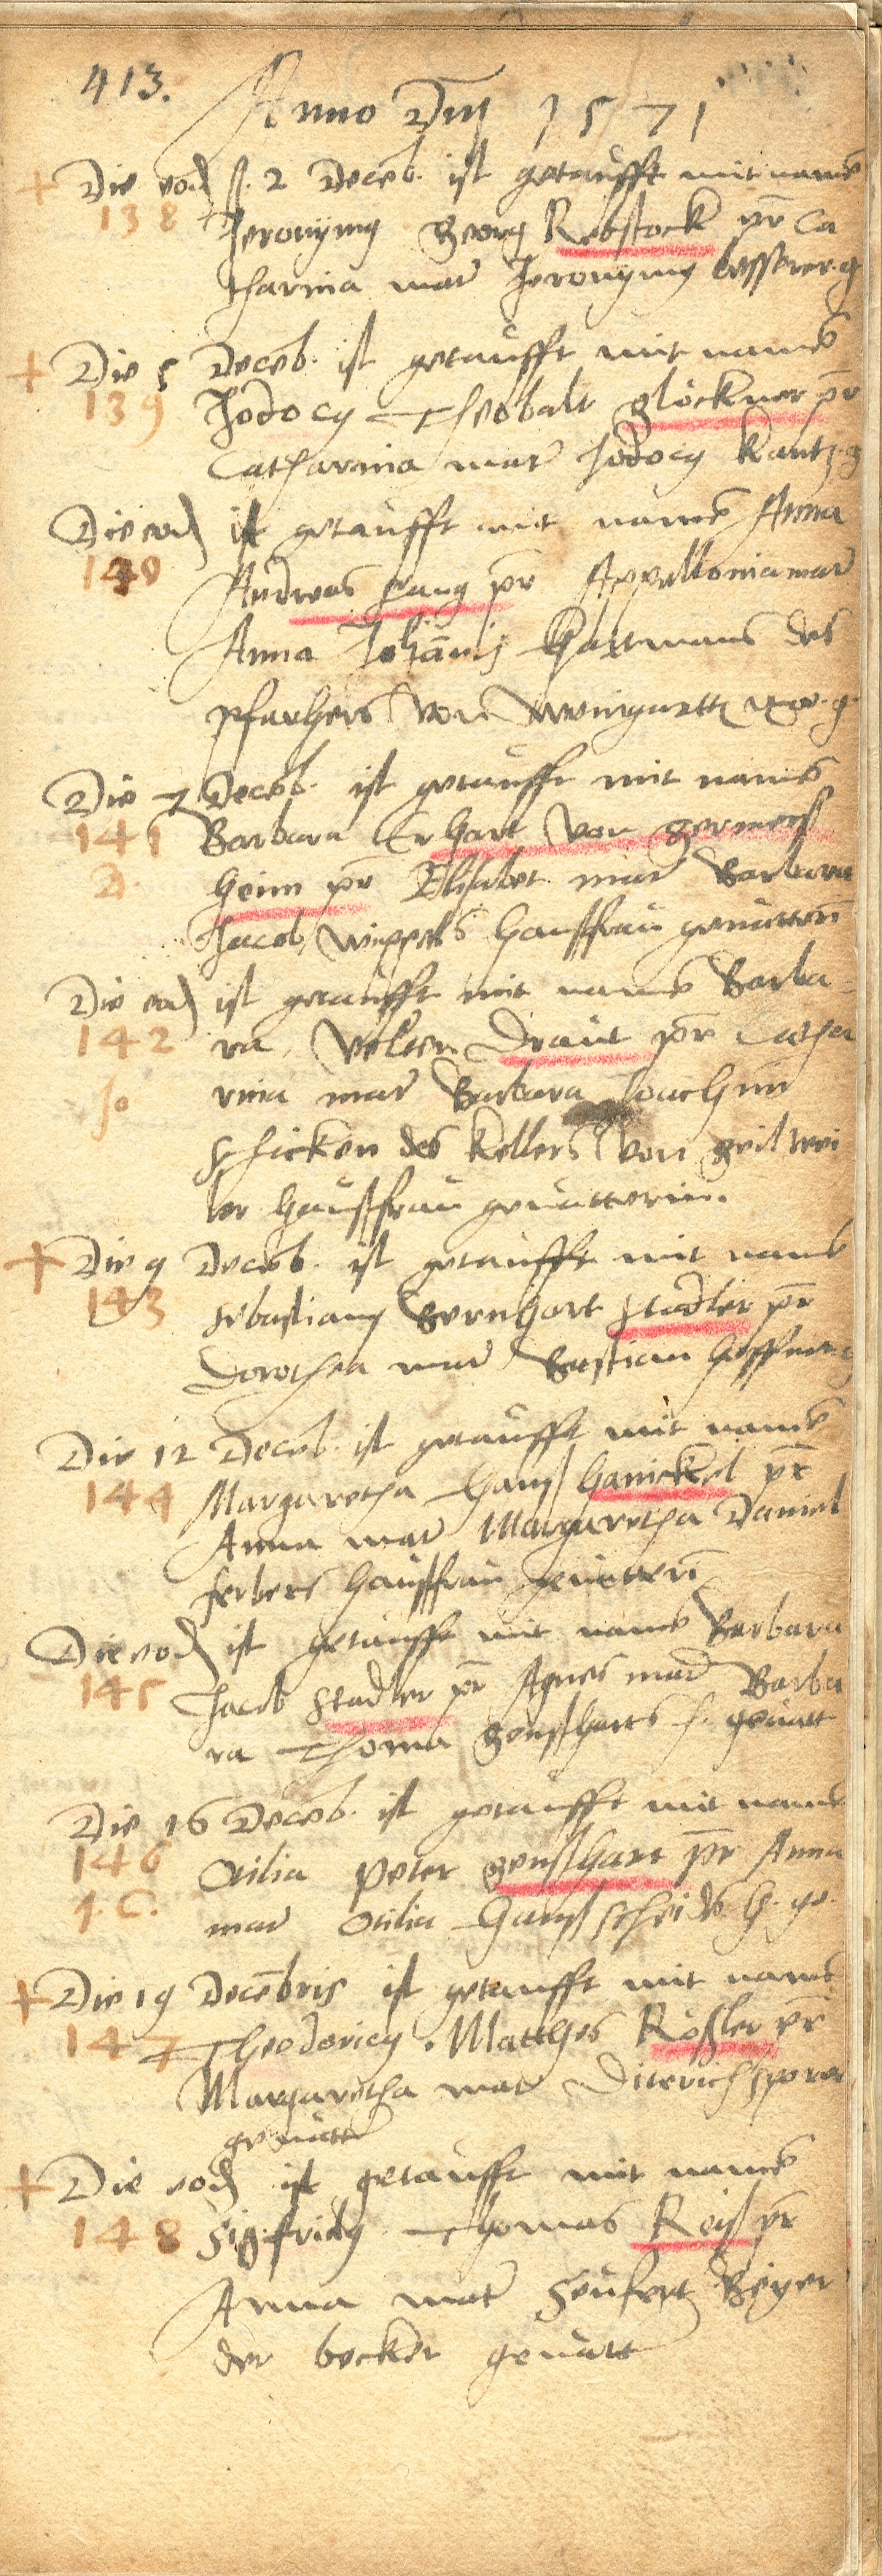 413.
Anno Dni 1571
+ Die eod. s. 2 Deceb. ist getaufft mit name
138 Jeronymg Georg Rebstock pr Ca
tharina mat Jeronymg besserer g
+ Die 5 Deceb. ist getaufft mit name
139 Jodocg Theobalt glöckner pr
Catharina mat Jodocg Kantz g
Die eod ist getaufft mit name Anna
140 Andreas Lang pr Appellonia mat
Anna Johānis Hartmans des
pfarhers von Weingartt g.
Die 7 Deceb. ist getaufft mit name
141 Barbara Erhart von germerss
D. heim pr Elisabet mat Barbara
Jacob Wippels haussfrau geuatterin
Die eod ist getaufft mit name Barba-
142 ra, Velten Draut pr Catha
Jo rina mat Barbara Joachim
schicken des Kellers von geilwei
ler haussfrau geuatterinn.
+ Die 9 Deceb. ist getaufft mit name
143 Sebastiang Bernhart Stadler pr
Dorothea mat Bastian
Die 12 Deceb. ist getaufft mit name
144 Margaretha Hanss Hanickel pr
Anna mat Margaretha Daniel
ferbers haussfrau geuatterin
Die eod ist getaufft mit name Barbara
145 Jacob Stadler pr Agnes mat Barba
ra Thoma genssharts h. geuatt
Die 16 Deceb. ist getaufft mit name
146 Otilia Peter gensshart pr Anna
J. C. mat Otilia Hanss scheids h. ge.
+ Die 19 Decēbris ist getaufft mit name
147 Theodoricg. Matthes Rössler pr
Margaretha mat Diterich
geuatter
+ Die eod ist getaufft mit name
148 Sigfridg Thomas Reiss pr
Anna mat Seufert Beyer
der becker geuatt